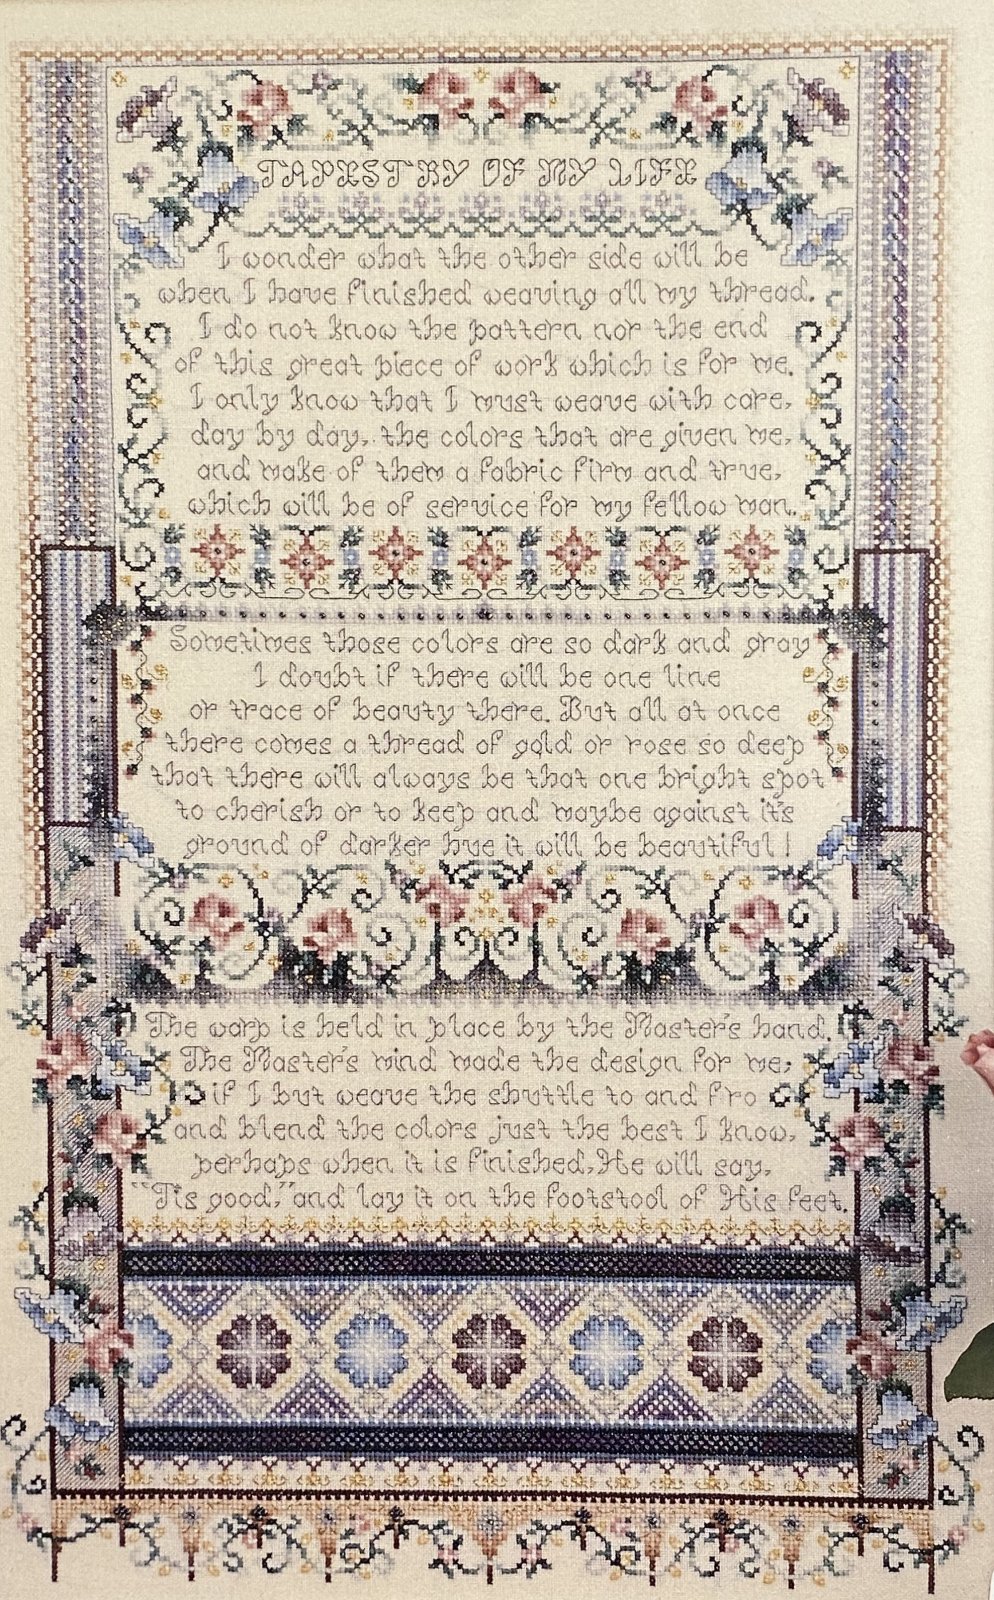 TAPESTRY OF MY LIFE
I wonder what the other side will be
when I have finished weaving all my thread.
I do not know the pattern nor the end
of this great piece of work which is for me.
I only know that I must weave with care,
day by day, the colors that are given me,
and make of them a fabric firm and true,
which will be of service for my fellow man.
Sometimes those colors are so dark and gray
I doubt if there will be one line
or trace of beauty there. But all at once
there comes a thread of gold or rose so deep
that there will always be that one bright spot
to cherish or to keep and maybe against it's
ground of darker hue it will be beautiful!
The warp is held in place by the Master's hand.
The Master's mind made the design for me;
if I but weave the shuttle to and fro
and blend the colors just the best I know,
perhaps when it is finished, He will say,
"'Tis good," and lay it on the footstool of His feet.